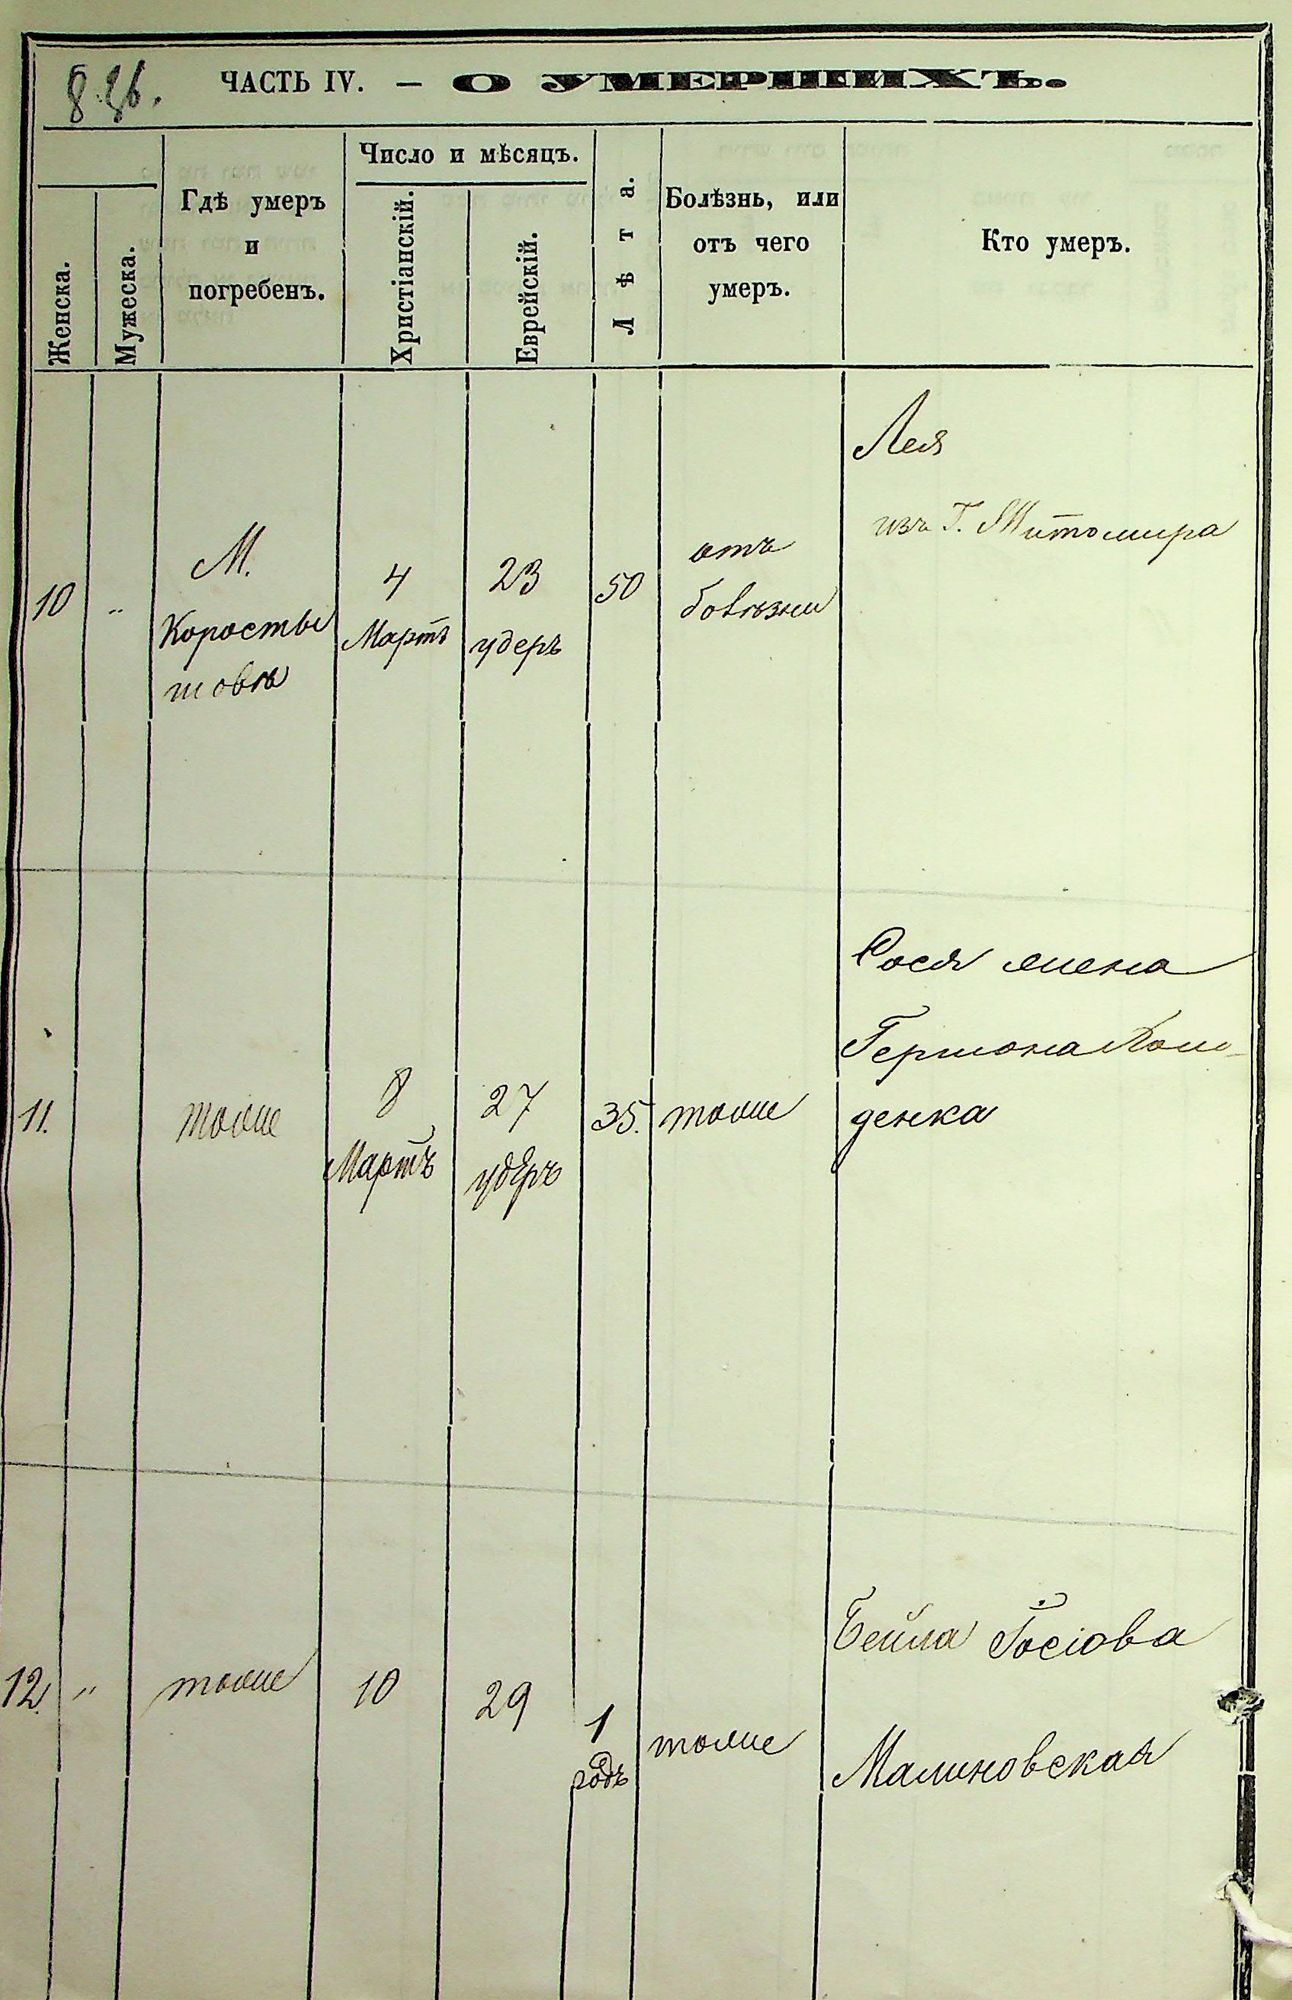 ЧАСТЬ IV. — О УМЕРШИХЪ.
Женска.
Мужеска.
Гдѣ умеръ
и
погребенъ.
Число и мѣсяцъ.
Христіанскій.
Еврейскій.
Лѣта.
Болѣзнь, или
отъ чего
умеръ.
Кто умеръ.
10
"
М.
Коросты
шовѣ
4
Мартъ
23
удеръ
50
отъ
болѣзни
Лея
изъ Г. Житомира
11.
тоже
8
Мартъ
27
удеръ
35.
тоже
Сося жена
Гершона
денка
12.
"
тоже
10
29
1
годъ
тоже
Бейла Іосіова
Малиновская